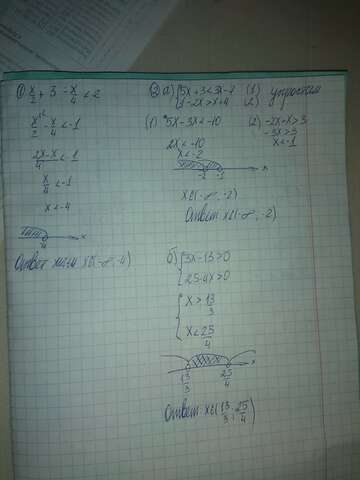 ① x/2 + 3 - x/4 < 2
x/2 - x/4 < -1
2x-x/4 < -1
x/4 < -1
x < -4
x
4
Ответ x∈(-∞, -4)
② а) { 5x+3<3x-7 (1) упростим
1-2x>x+4 (2)
(1) 5x-3x<-10
2x < -10
x < -2
(2) -2x-x > 3
-3x > 3
x < -1
-2 -1 x
x∈(-∞, -2)
Ответ x∈(-∞, -2)
б) { 3x-13>0
25-4x>0
{ x > 13/3
x < 25/4
13/3 25/4 x
Ответ x∈(13/3; 25/4)